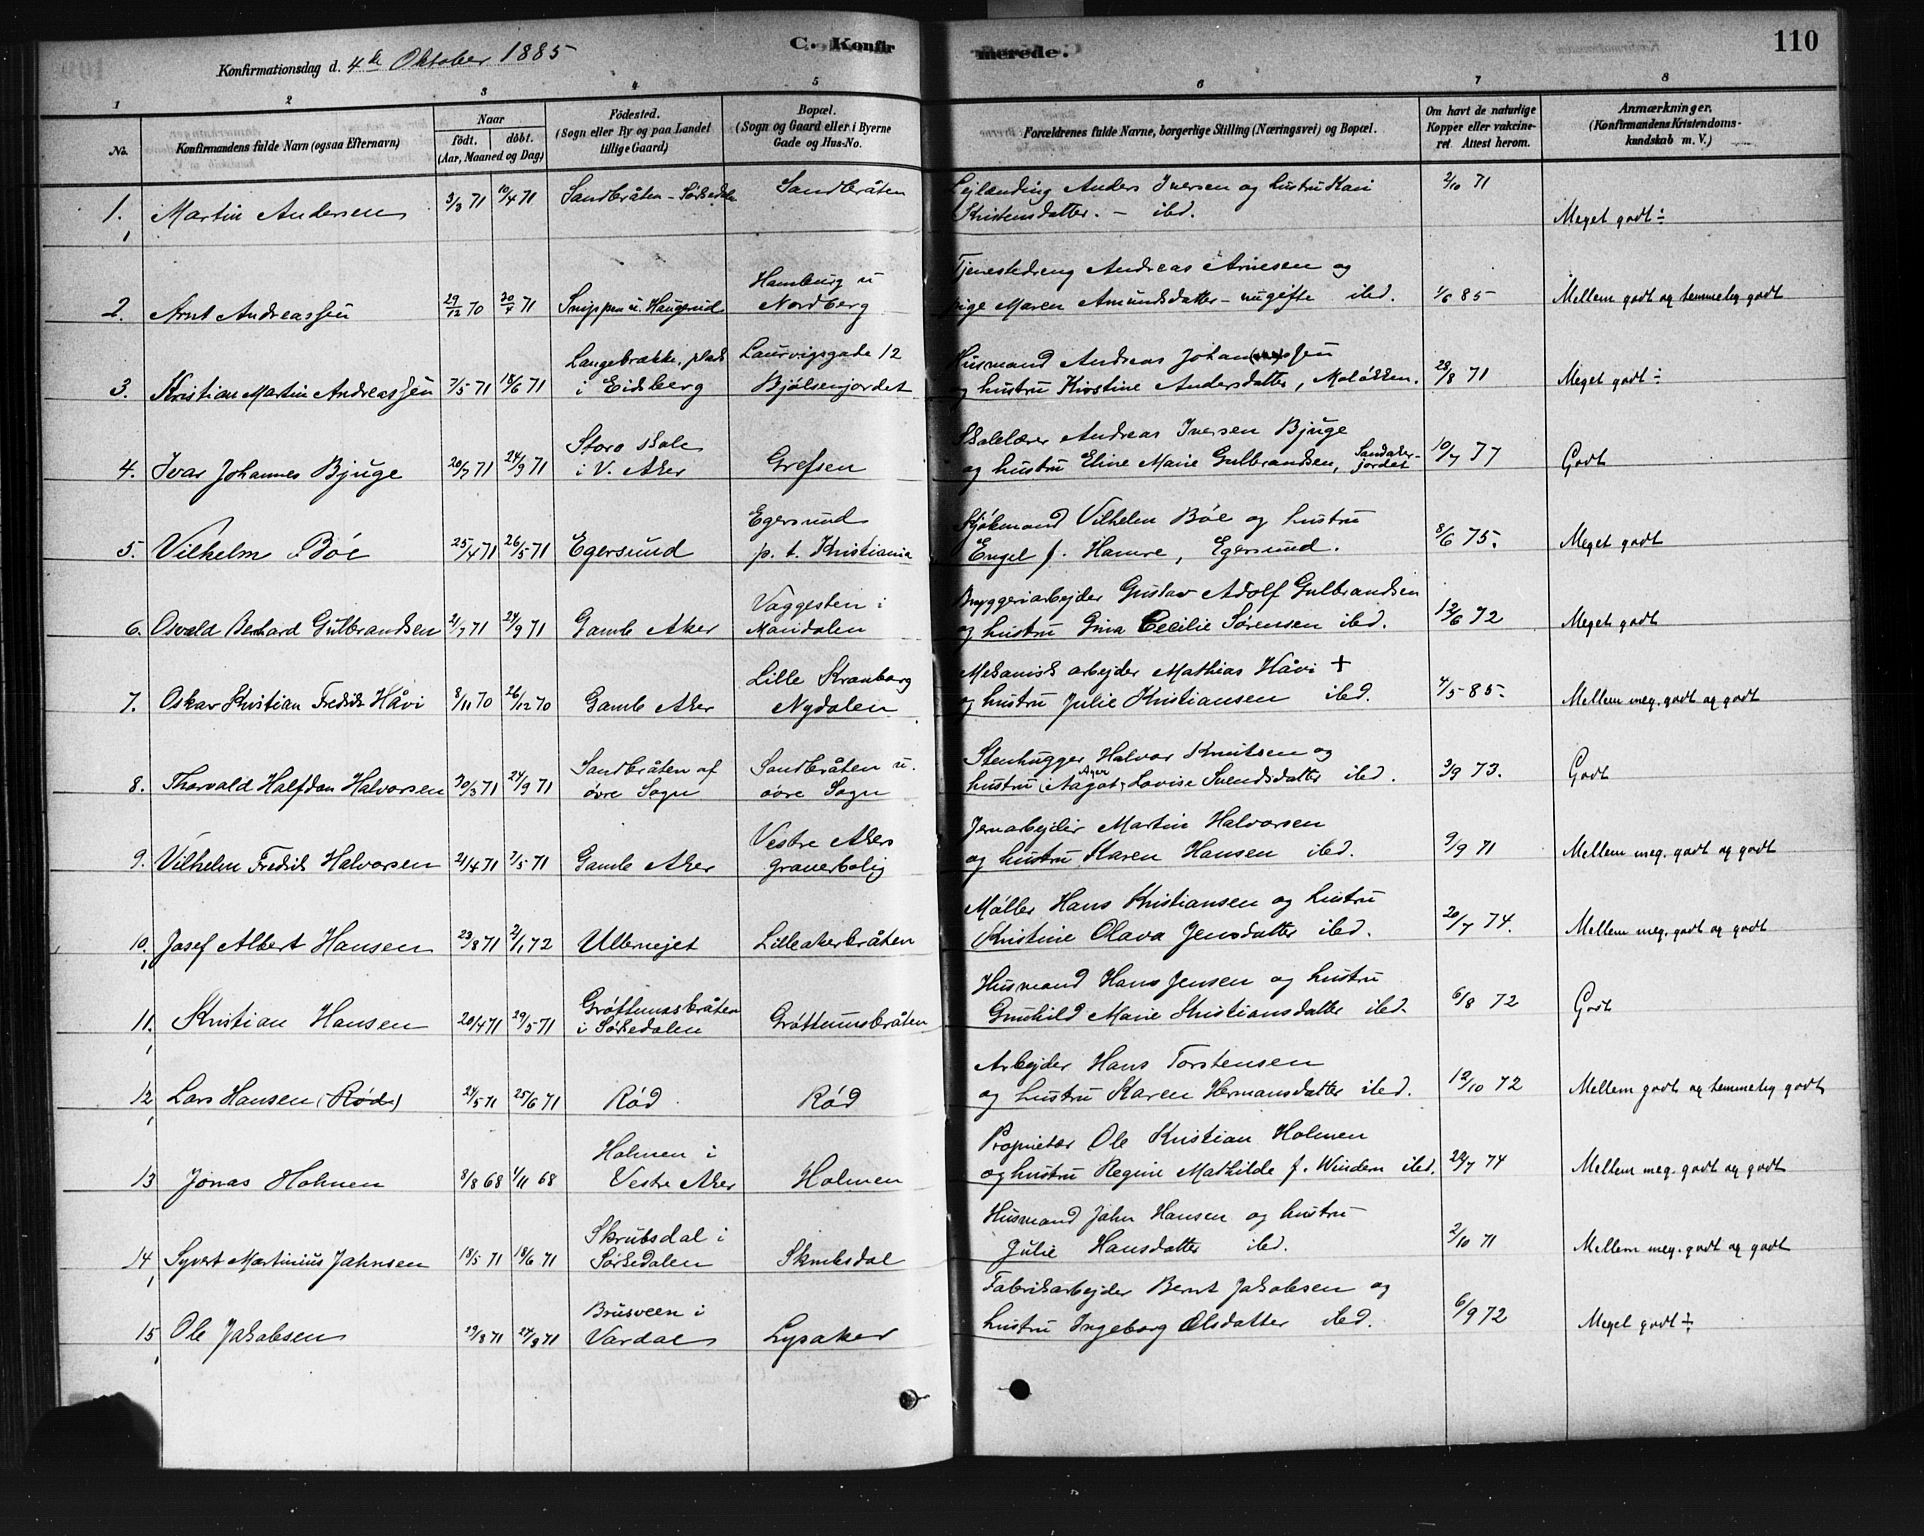 C. Konfirmerede.
110
Konfirmationsdag d. 4de Oktober 1885
1 2 3 4 5 6 7 8
No.
Konfirmandens fulde Navn (ogsaa Efternavn)
Naar
født. døbt.
(Aar, Maaned og Dag)
Fødested.
(Sogn eller By og paa Landet
tillige Gaard)
Bopæl.
(Sogn og Gaard eller i Byerne
Gade og Hus-No.
Forældrenes fulde Navne, borgerlige Stilling (Næringsvei) og Bopæl.
Om havt de naturlige
Kopper eller vakcine-
ret. Attest herom.
Anmærkninger.
(Konfirmandens Kristendoms-
kundskab m. V.)
1. Martin Andersen 3/3 71 10/4 71 Sandbråten - Sørkedalen Sandbråten Lejlænding Anders Iversen og hustru Kari 2/10 71
Kristensdatter. - ibd. Meget godt ÷
Hamburg u Tjenestedreng Andreas Arnesen og
2. Arnt Andreassen 29/12 70 30/4 71 Snippen u. Haugerud Nordberg pige Maren Amundsdatter - ugifte ibd. 1/6 85 Mellem godt og temmelig godt
Langebrække, plads Laurvigsgade 12 Husmand Andreas Johanssen
3. Kristian Martin Andreassen 7/5 71 18/6 71 i Eidsberg Bjølsenjordet og hustru Kirstine Andersdatter, Moløkken. 28/8 71 Meget godt ÷
Storo skole Skolelærer Andreas Iversen Bjuge
4. Ivar Johannes Bjuge 20/7 71 24/9 71 i V. Aker Grefsen og hustru Eline Marie Gulbrandsen, Sandaker-jordet 10/7 77 Godt
Egersund Sjøkmand Vilhelm Bøe og hustru
5. Vilhelm Bøe 25/4 71 26/5 71 Egersund p. t. Kristiania Engel f. Hamre, Egersund. 8/6 75. Meget godt
Vaggesten i Bryggeriarbejder Gustav Adolf Gulbrandsen
6. Osvald Berhard Gulbrandsen 21/7 71 24/9 71 Gamle Aker Maridalen og hustru Gina Cecilie Sørensen ibd. 12/6 72 Meget godt
Lille Kranborg Mekanisk arbejder Mathias Håvi +
7. Oskar Kristian Fredrik Håvi 8/11 70 26/12 70 Gamle Aker Nydalen og hustru Julie Kristiansen ibd. 4/5 85. Mellem meg. godt og godt
Sandbråten af Sandbråten u. Stenhugger Halvor Knutsen og
8. Thorvald Halfdan Halvorsen 30/3 71 24/9 71 øvre Sogn øvre Sogn hustru Aagot Lovise Svendsdatter ibd. 3/9 73. Godt
Vestre Akers Jernarbejder Martin Halvorsen
9. Vilhelm Fredrik Halvorsen 21/4 71 7/5 71 Gamle Aker graverbolig og hustru Karen Hansen ibd. 9/9 71 Mellem meg. godt og godt
Møller Hans Kristiansen og hustru
10. Josef Albert Hansen 23/8 71 2/1 72 Ullernejet Lilleakerbråten Kristine Olava Jensdatter ibd. 20/7 74. Mellem meg. godt og godt
Grøttumsbråten Husmand Hans Jensen og hustru
11. Kristian Hansen 20/4 71 29/5 71 i Sørkedalen Grøttumsbråten Gunhild Marie Kristiansdatter ibd. 6/8 72 Godt
Arbejder Hans Torstensen
12 Lars Hansen (Rød) 24/5 71 25/6 71 Rød. Rød og hustru Karen Hermansdatter ibd. 12/10 72 Mellem godt og temmelig godt
Holmen i Proprietær Ole Kristian Holmen
13 Jonas Holmen 8/8 68 1/11 68 Vestre Aker Holmen og hustru Regine Mathilde f. Windern ibd. 29/7 74 Mellem meg. godt og godt
Skrubsdal i Husmand John Hansen og hustru
14 Syvert Martinius Johnsen 18/5 71 18/6 71 Sørkedalen Skrubsdal Julie Hansdatter ibd. 2/10 71 Mellem meg. godt og godt
Brusveen i Fabrikarbejder Bernt Jakobsen og
15 Ole Jakobsen 29/8 71 24/9 71 Vardal Lysaker hustru Ingeborg Olsdatter ibd. 6/9 72 Meget godt ÷